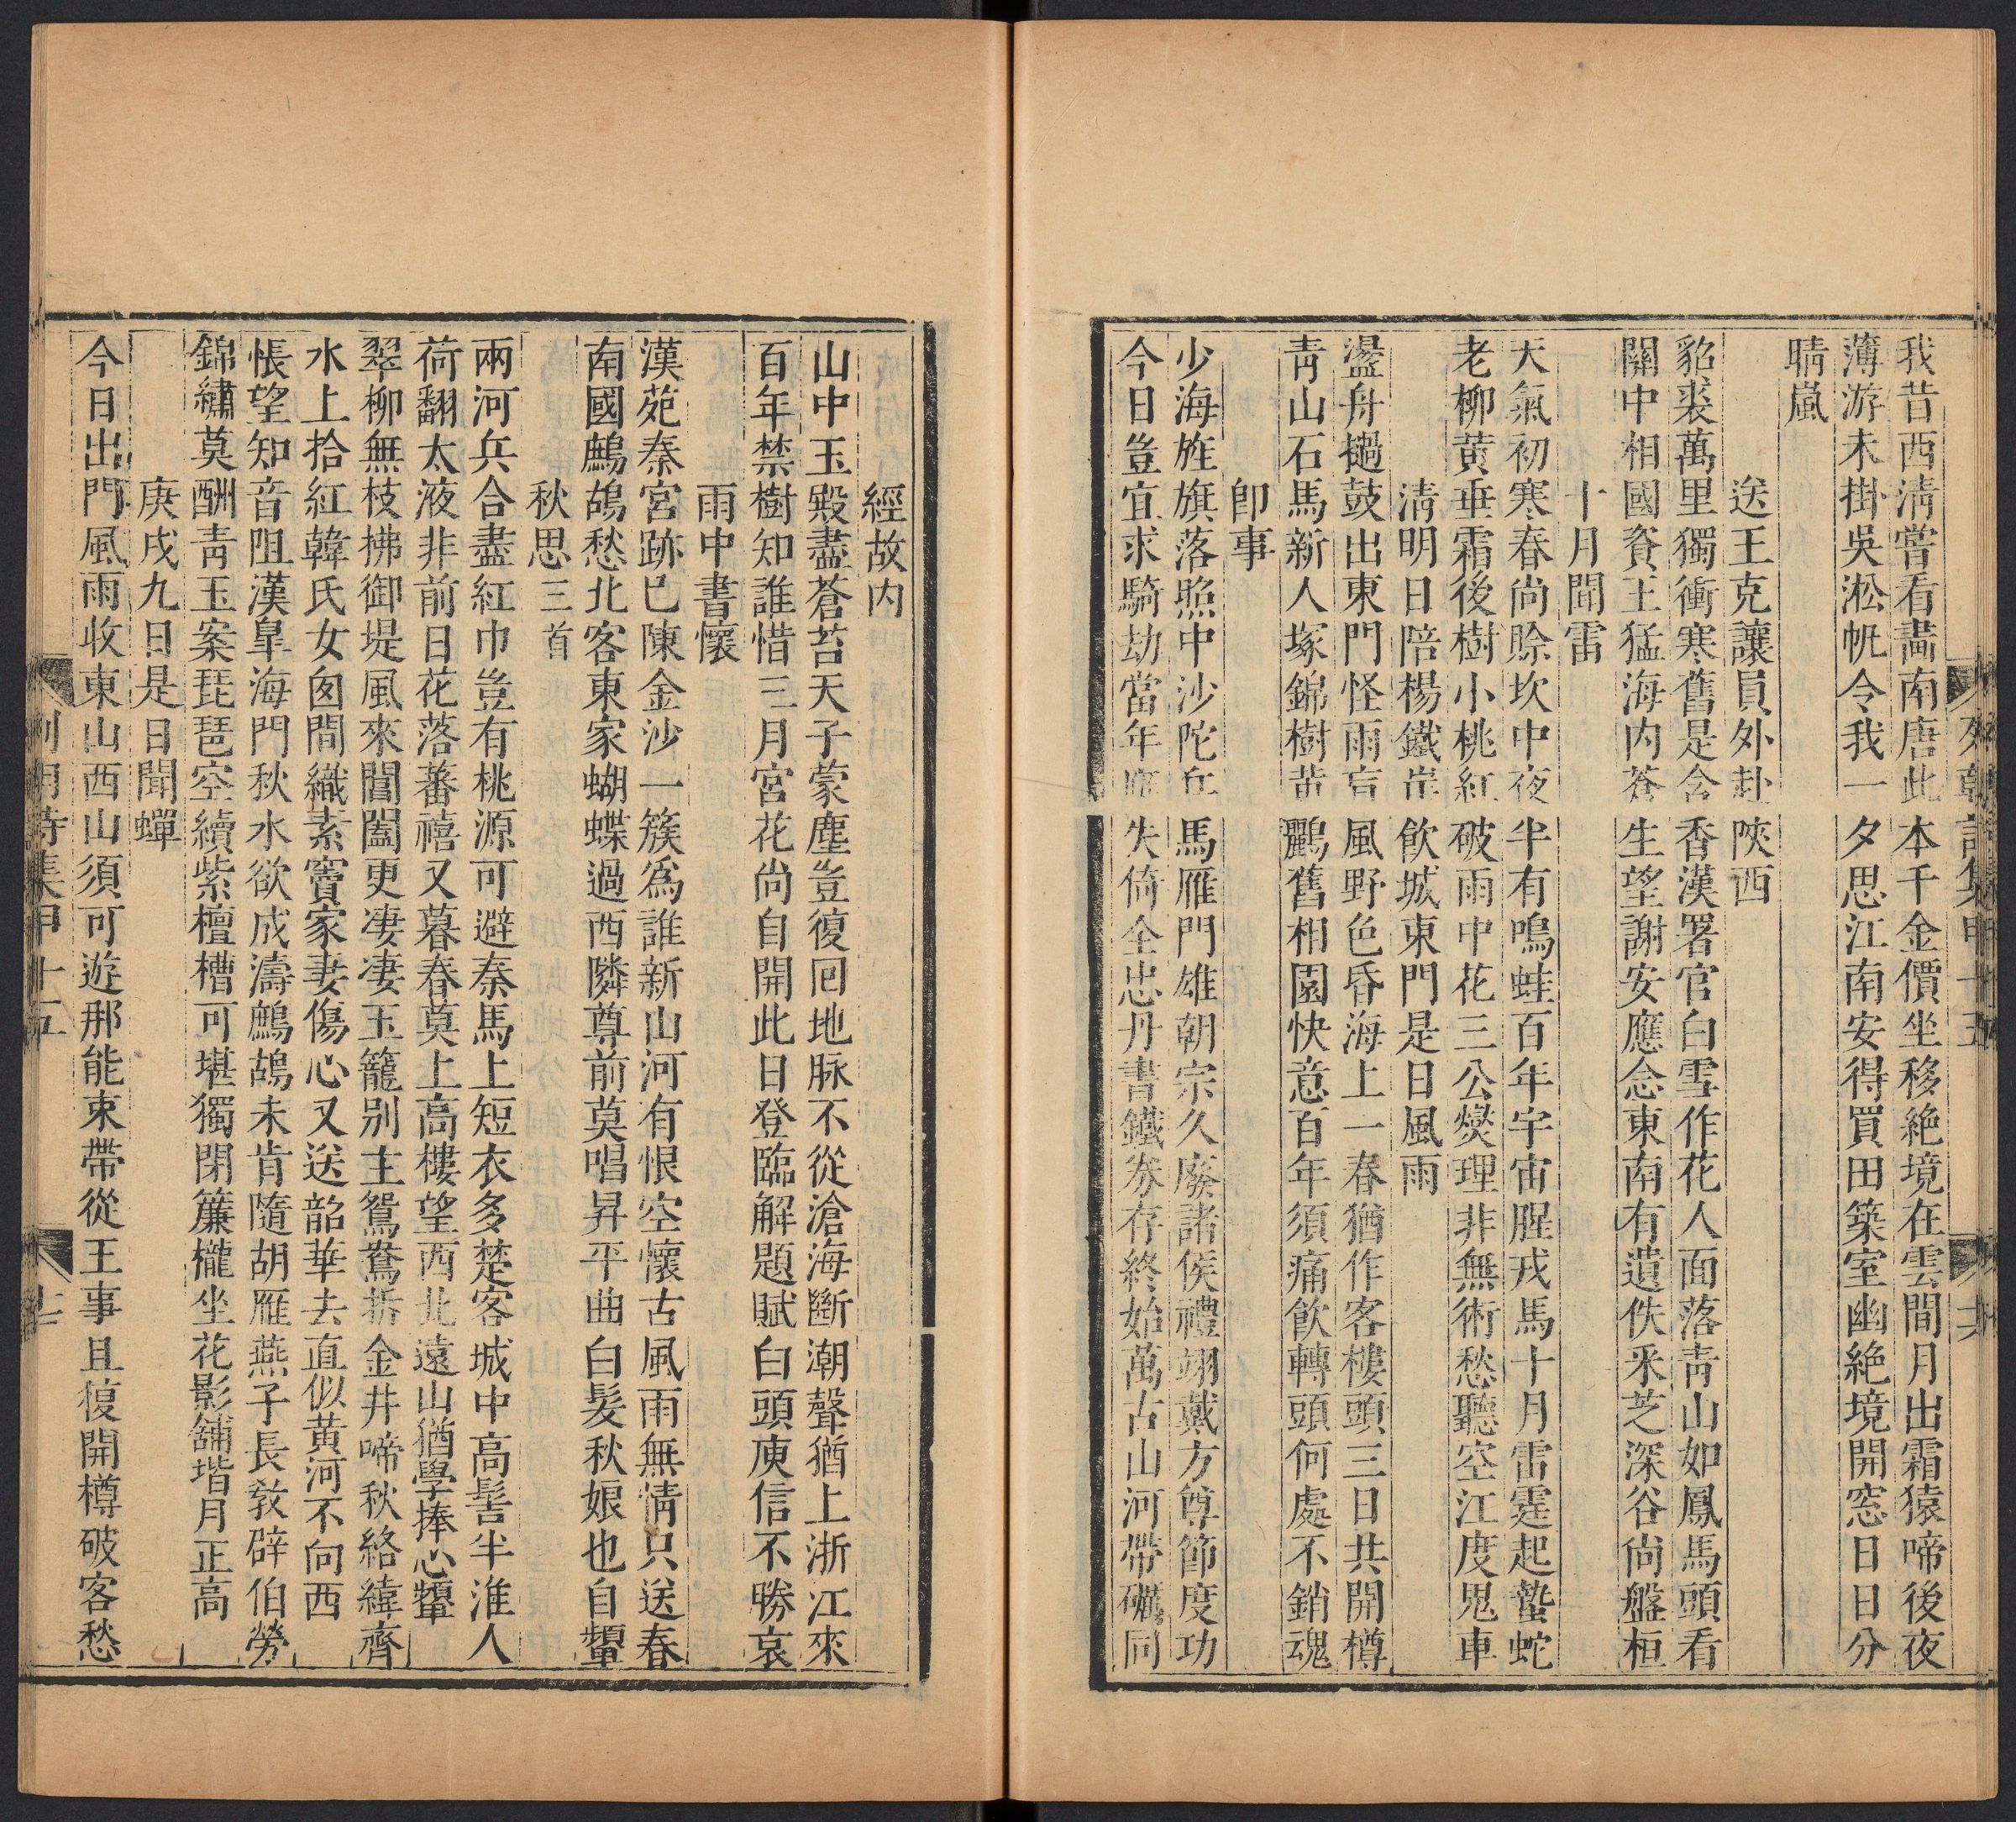 我昔西淸嘗看畵南唐此本千金價坐移絶境在雲間月出霜猿啼後夜
薄游未掛吳淞帆令我一夕思江南安得買田築室幽絶境開窓日日分
晴嵐
送王克讓員外赴陝西
貂裘萬里獨衝寒舊是含香漢署官白雪作花人面落靑山如鳳馬頭看
關中相國資王猛海內蒼生望謝安應念東南有遺佚釆芝深谷尙盤桓
十月聞雷
天氣初寒春尙賒坎中夜半有鳴蛙百年宇宙腥戎馬十月雷霆起蟄蛇
老柳黃垂霜後樹小桃紅破雨中花三公燮理非無術愁聽空江度鬼車
淸明日陪楊鐵崖飮城東門是日風雨
盪舟撾鼓出東門怪雨盲風野色昏海上一春猶作客樓頭三日共開樽
靑山石馬新人塚錦樹黃鸝舊相園快意百年須痛飮轉頭何處不銷魂
卽事
少海旌旗落照中沙陀兵馬雁門雄朝宗久廢諸侯禮翊戴方尊節度功
今日豈宜求騎劫當年應失倚全忠丹書鐵券存終始萬古山河帶礪同
列朝詩集甲十五
經故內
山中玉殿盡蒼苔天子蒙塵豈復回地脉不從滄海斷潮聲猶上浙江來
百年禁樹知誰惜三月宮花尙自開此日登臨解題賦白頭庾信不勝哀
雨中書懷
漢苑秦宮跡已陳金沙一簇爲誰新山河有恨空懷古風雨無情只送春
南國鷓鴣愁北客東家蝴蝶過西隣尊前莫唱昇平曲白髮秋娘也自顰
秋思三首
兩河兵合盡紅巾豈有桃源可避秦馬上短衣多楚客城中高髻半淮人
荷翻太液非前日花落蕃禧又暮春莫上高樓望西北遠山猶學捧心顰
翠柳無枝拂御堤風來閶闔更凄凄玉籠別主鴛鴦拆金井啼秋絡緯齊
水上拾紅韓氏女囱間織素竇家妻傷心又送韶華去直似黃河不向西
悵望知音阻漢臯海門秋水欲成濤鷓鴣未肯隨胡雁燕子長敎辟伯勞
錦繡莫酬靑玉案琵琶空續紫檀槽可堪獨閉簾櫳坐花影舖堦月正高
庚戌九日是日聞蟬
今日出門風雨收東山西山須可遊那能束帶從王事且復開樽破客愁
列朝詩集甲十五